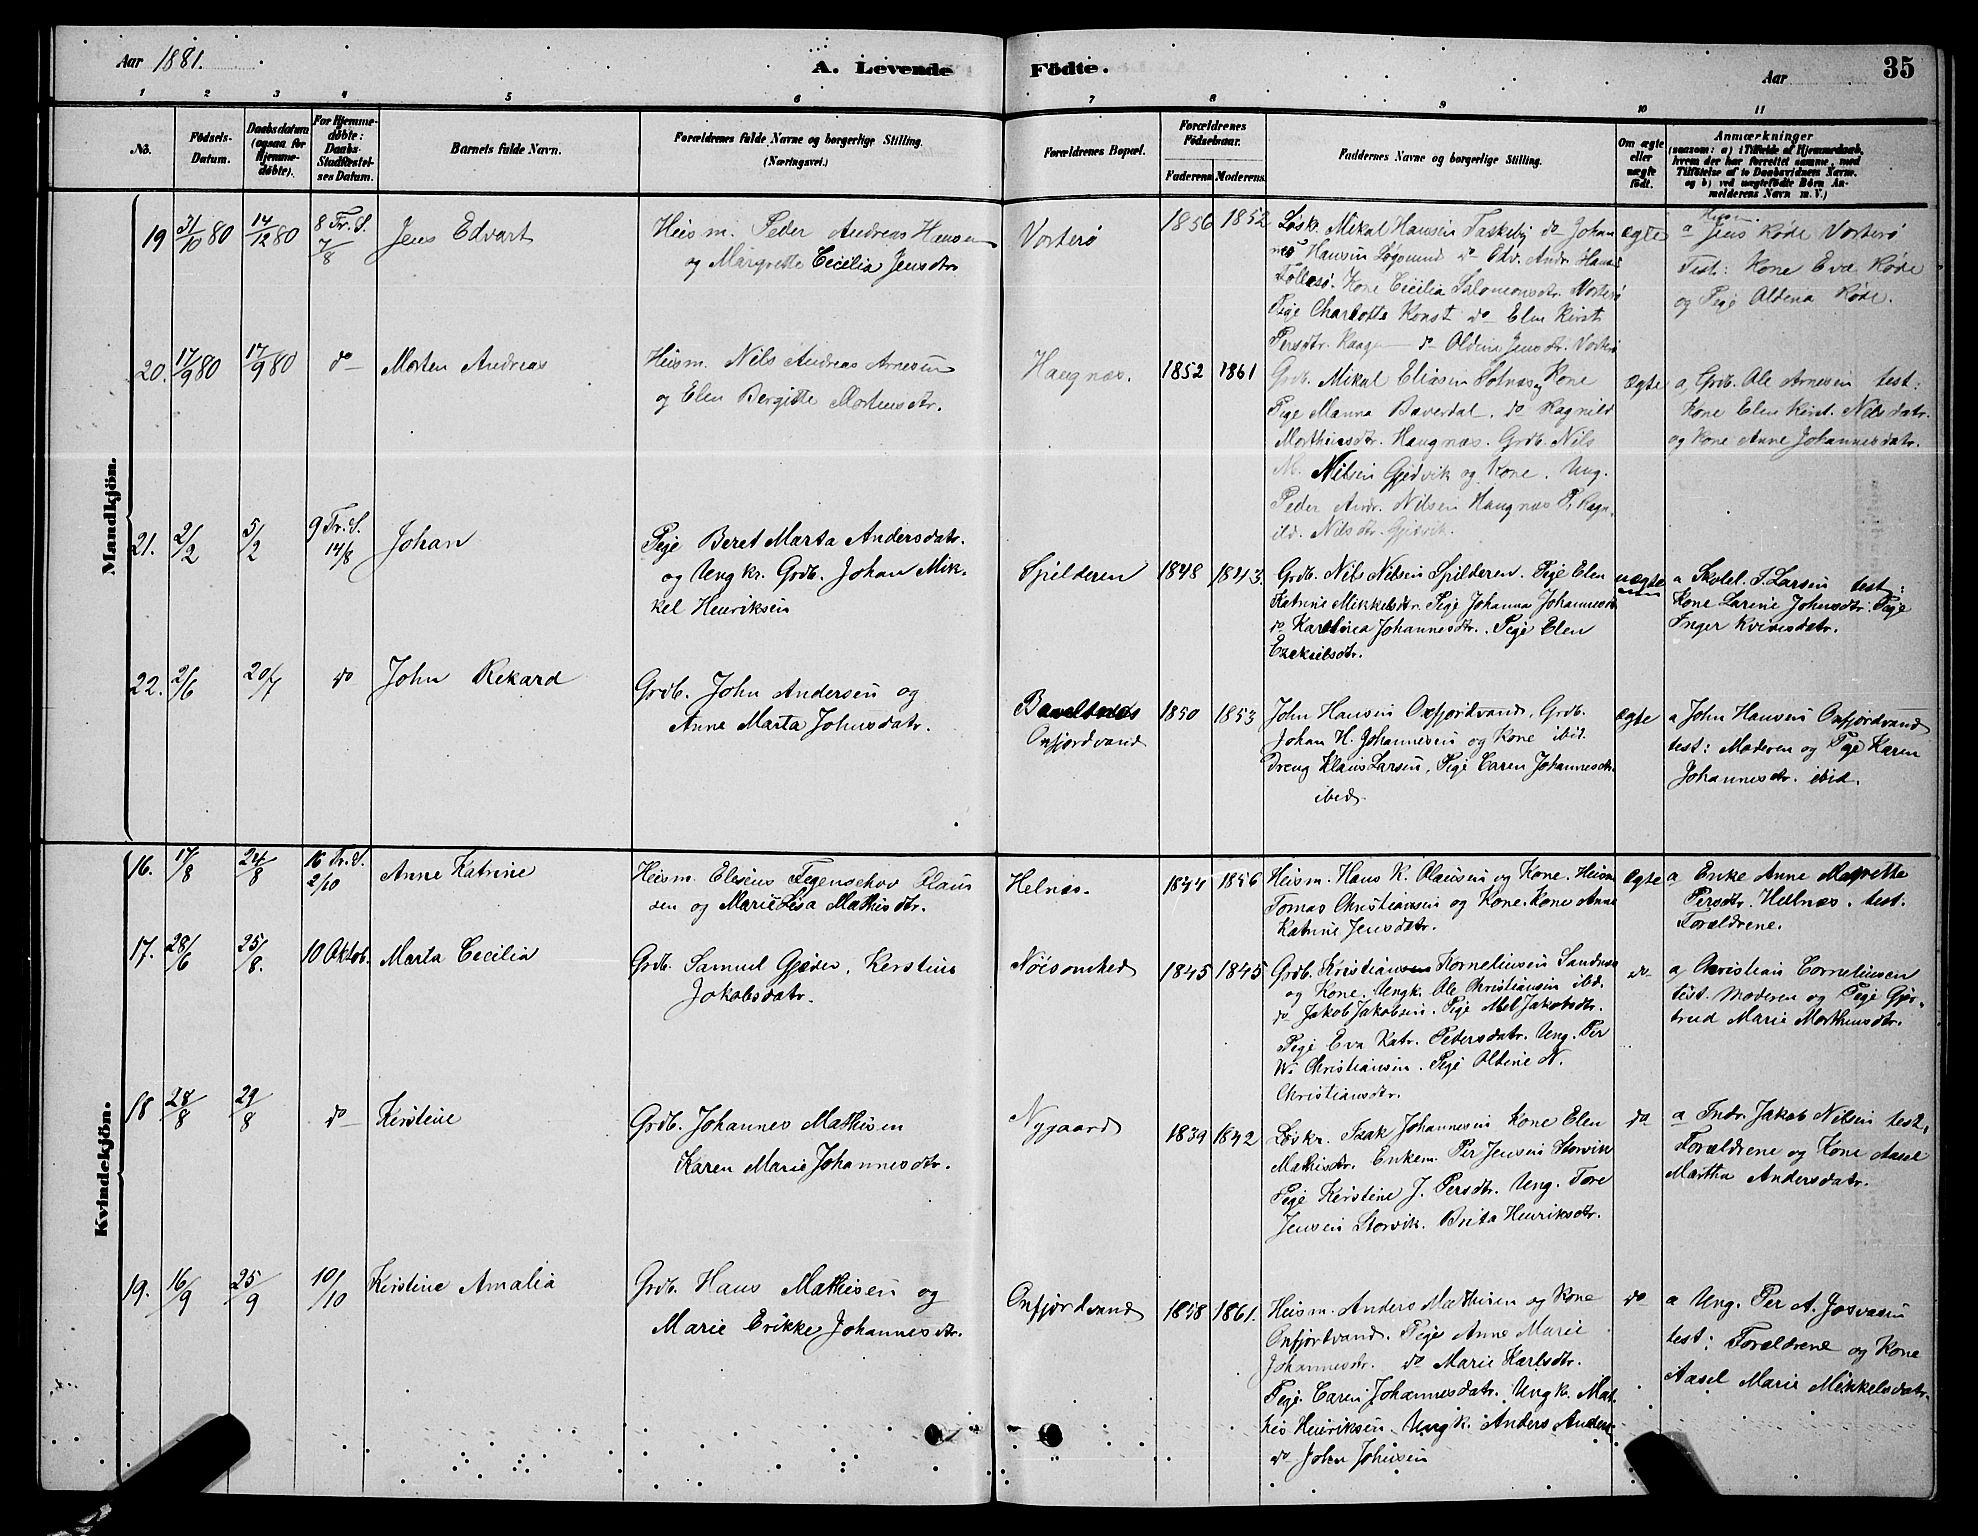 Aar 1881.
A. Levende Fødte.
Aar
35
1 2 3 4 5 6 7 8 9 10 11
No.
Fødsels-
Datum.
Daabsdatum
(ogsaa for
Hjemme-
døbte).
For Hjemme-
døbte:
Daabs-
Stadfæstel-
ses Datum.
Barnets fulde Navn.
Forældrenes fulde Navne og borgerlige Stilling.
(Næringsvei.)
Forældrenes Bopæl.
Forældrenes
Fødselsaar.
Faderens Moderens.
Faddernes Navne og borgerlige Stilling.
Om ægte
eller
uægte
født.
Anmærkninger
(saasom: a) i Tilfælde af Hjemmedaab,
hvem der har forrettet samme, med
Tilføielse af to Daabsvidners Navne.
og b) ved uægtefødte Børn An-
melderens Navn m. V.)
Mandkjön.
19 31/10 80 14/12 80 8 Tr. S. 7/8
Jens Edvart
Heism. Peder Andreas Hansen
og Margrette Cecilia Jensdtr.
Vorterø
1856 1852
Løsk. Mikal Hansen Taskeby do Johan
nes Hansen Løgsund do Edv. Andr. Hans
Kone Cecilia Salomonsdtr. Vorterø
Pige Charlotte Konst do Elen Kirst.
Persdtr. Kaagen do Oldine Jensdtr. Vorterø
ægte
a Jens Røde Vorterø
Test: Kone Eva Røde
og Pige Aldena Røde.
20. 17/9 80 17/9 80 do
Morten Andreas
Heism. Nils Andreas Arnesen
og Elen Bergitte Mortensdtr.
Haugnæs.
1852 1861
Grdb. Mikal Eliasen Kone
Pige Manna Baverdal. do Ragnild
Morthensdtr. Haugnæs. Grdb. Nils
M. Nilsen Gjøvik og Kone. Ung.
Peder Andr. Nilsen Haugnæs P. Ragn
ild. Nilsdtr. Gjøvik.
ægte
a, Grdb. Ole Arnesen test:
Kone Elen Kirst. Nilsdatr.
og Kone Anne Johannesdatr.
21. 2/2 5/2 9 Tr. S. 14/8
Johan
Pige Beret Marta Andersdatr.
og Ungkr. Grdb. Johan Mik-
kel Henriksen
Spilderen
1848 1843.
Grdb. Nils Nilsen Spilderen. Pige Elen
Katrine Mikkelsdtr. Pige Johanna Johannesdtr
do Karolina Johannesdtr. Pige Elen
Ezekielsdtr.
uægte
a Skolel. I. Larsen test:
Kone Larine Johnsdtr. Pige
Inger Kvivesdatr.
22. 2/6 20/7 do
John Rekard
Grdb. John Andersen og
Anne Marta Johnsdatr.
Onfjordvand
1850 1853
John Hansen Onfjordvand, Grdb.
Johan H. Johannesen og Kone ibid.
Dreng Klaus Larsen, Pige Caren Johannesdtr.
ibid.
ægte
a John Hansen Onfjordvand
test: Moderen og Pige Karen
Johannesdtr. ibid.
Kvindekjön.
16. 17/8 24/8 16 Tr. S. 2/10
Anne Katrine
Heism. Eleseus Fegenschov Olaus
sen og Marie Lisa Mathisdtr.
Helnæs.
1844 1856
Heism. Hans K. Olausen og Kone. Heism
Tomas Christiansen og Kone. Kone Anne
Katrine Jensdatr.
ægte
a Enke Anne Magrette
Persdtr. Helnæs. test.
Forældrene.
17. 28/6 25/8. 10 Oktob.
Marta Cecilia
Grdb. Samuel Gjæver, Kerstine
Jokobsdatr.
1845 1845
Grdb. Kristian Kornelinsen Sandnes
og Kone. Ungk. Ole Christiansen ibd.
do Jakob Jakobsen. Pige Mel Jakobsdtr.
Pige Eva Katr. Pedersdatr. Ung. Per
W. Christiansen. Pige Oldine N.
Christiansdtr.
do
a, Christian Cornelinsen
test. Moderen og Pige Gjer-
trud Marie Morthensdtr.
18 28/8 29/8 do
Kerstine
Grdb. Johannes Mathisen
Karen Marie Johannesdtr.
Nygaard
1839 1842
Løskr. Isak Johannesen Kone Elen
Mathisdtr. Enkem. Per Jensen Storvik
Pige Kerstine J. Persdtr. Ung. Tore
Jensen Storvik. Brita Henriksdtr.
do
a Indr. Jakob Nilsen test.
Forældrene og Kone Aasel
Martha Andersdatr.
19. 16/9 25/9 10/10
Kerstine Amalia
Grdb. Hans Mathisen og
Marie Erikke Johannesdtr.
Onfjordvand
1858 1861.
Heism. Anders Mathisen og Kone
Onfjordvand. Pige Anne Marie
Johannesdtr. do Marie Karlsdtr.
Pige Caren Johannesdatr. Ungk. Mat-
his Henriksen. Ungk. Anders Anders
do John Johnsen
do
a Ung. Per A. Josvasen
test: Forældrene og Kone
Aasel Marie Mikkelsdatr.